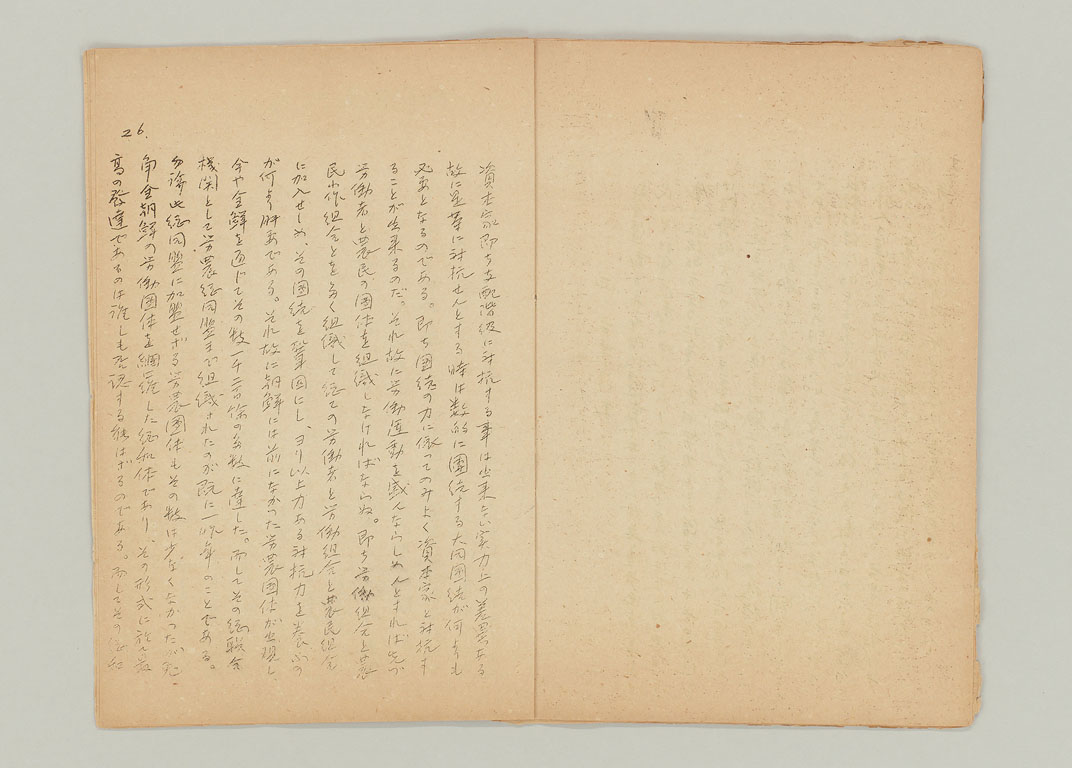 26.
資本家即ち支配階級に対抗する事は出来ない実力上の差異ある
故に是等に対抗せんとする時は数的に団結する大同団結が何よりも
必要となるのである。即ち団結の力に依ってのみよく資本家と対抗す
ることが出来るのだ。それ故に労働運動を盛んならしめんとすれば先づ
労働者と農民の団体を組織しなければならぬ。即ち労働組合と農
民小作組合とを多く組織して総ての労働者と労働組合と農民組合
に加入せしめ、その団結を鞏固にし、ヨリ以上力ある対抗力を養ふの
が何より肝要である。それ故に朝鮮には前になかった労農団体が出現し
今や全鮮を通じてその数一千二百余の多数に達した。而してその総聯合
機関として労農総同盟まで組織されたのが既に一昨年のことである。
勿論此総同盟に加盟せざる労農団体もその数は少なくなかったが
角全朝鮮の労働団体を網羅した総和体であり、その形式に於て最
高の発達であるのは誰しも否認する能はざるのである。而してその